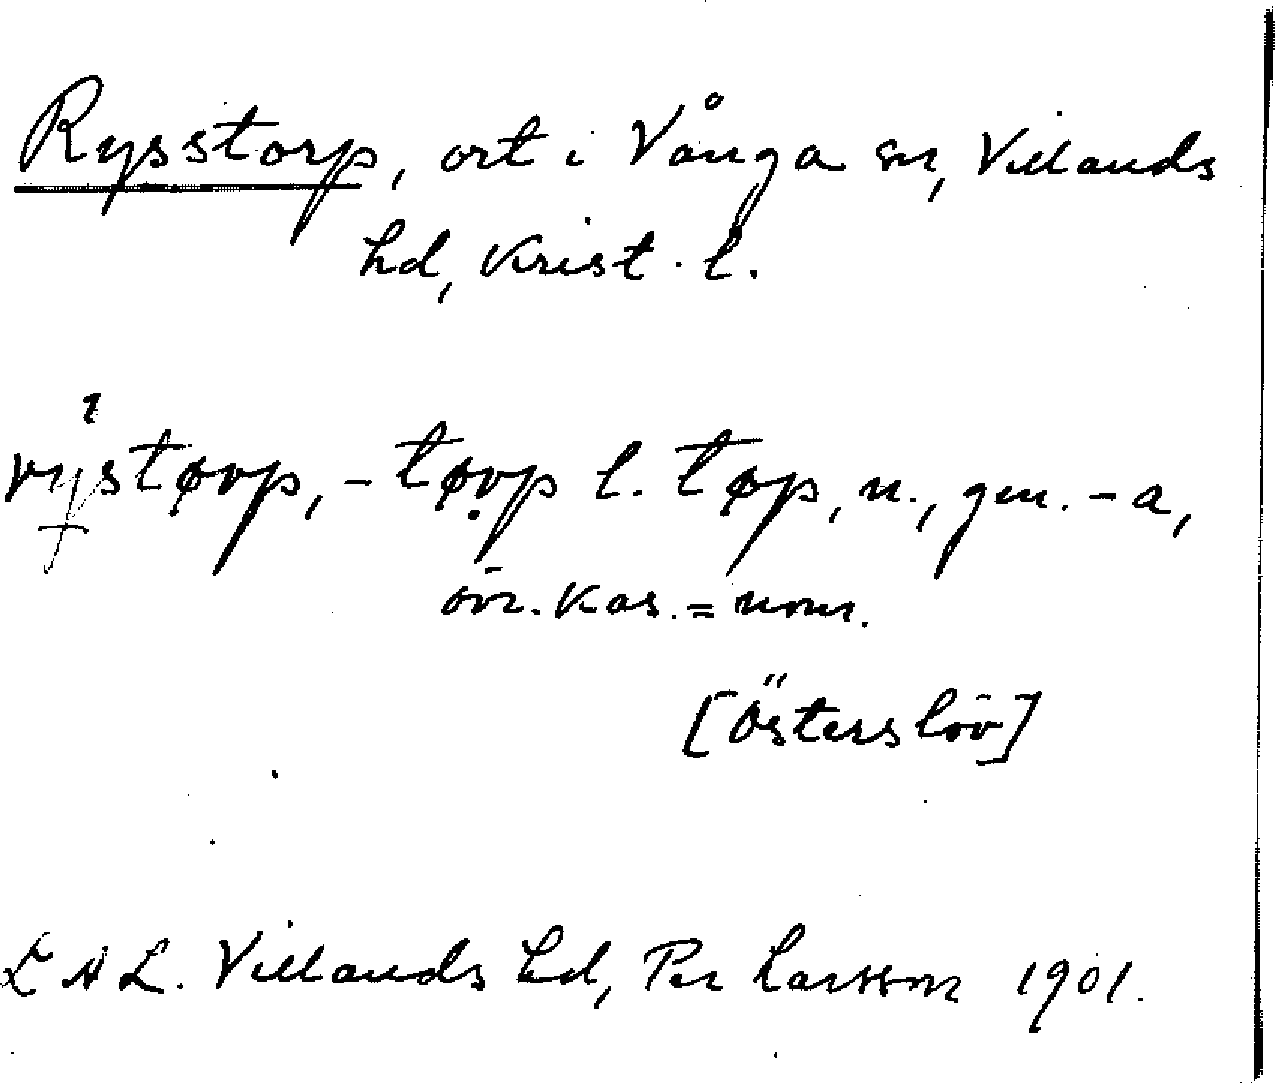 Rysstorp, ort i Vånga sn, Villands
hd, Krist. l.
rystørp, -tørp l. tøp, n., gen. -a,
övr. kas. = nom.
[Österslöv]
L A L. Villands hd, Per Larsson 1901.